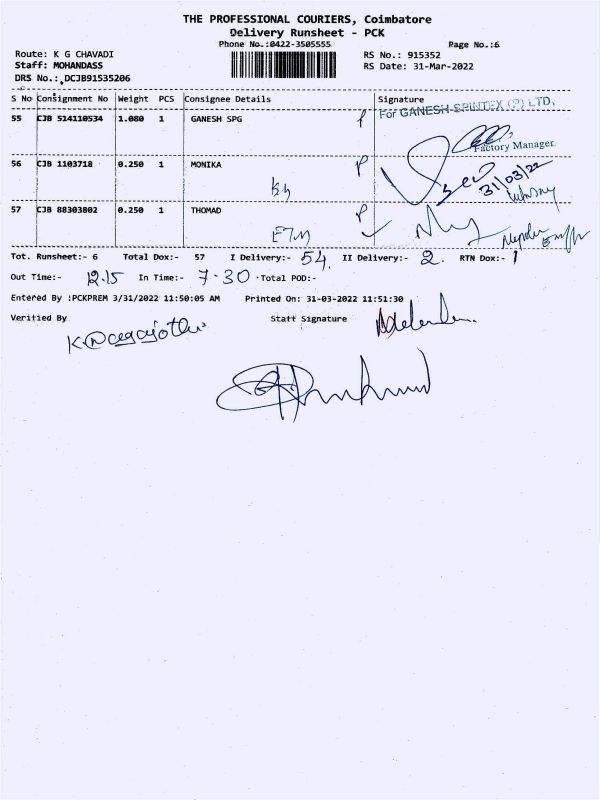 THE PROFESSIONAL COURIERS, Coimbatore
Delivery Runsheet - PCK
Phone No.:0422-3505555 Page No.:6
Route: K G CHAVADI RS No.: 915352
Staff: MOHANDASS RS Date: 31-Mar-2022
DRS No.: DCJB91535206
S No Consignment No Weight PCS Consignee Details Signature
For GANESH SPINTEX (P) LTD.,
55 CJB 514110534 1.080 1 GANESH SPG P
Factory Manager
56 CJB 1103718 0.250 1 MONIKA P
31/03/22
57 CJB 88303802 0.250 1 THOMAD P
Tot. Runsheet:- 6 Total Dox:- 57 I Delivery:- 54 II Delivery:- 2 RTN Dox:- 1
Out Time:- 12.15 In Time:- 7-30 Total POD:-
Entered By :PCKPREM 3/31/2022 11:50:05 AM Printed On: 31-03-2022 11:51:30
Verified By Staff Signature